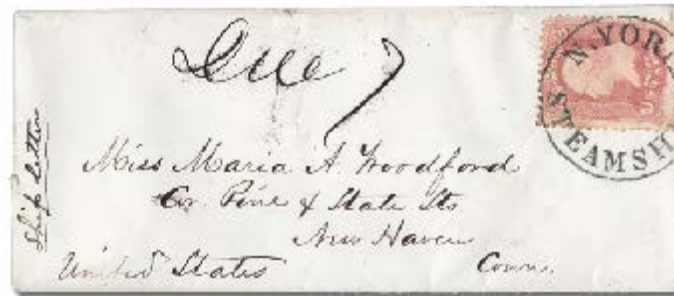 Due 7
N. YOR
STEAMSH
Ship Letter
Miss Maria A. Woodford
Cor. Pine & State Sts
New Haven
United States Conn.